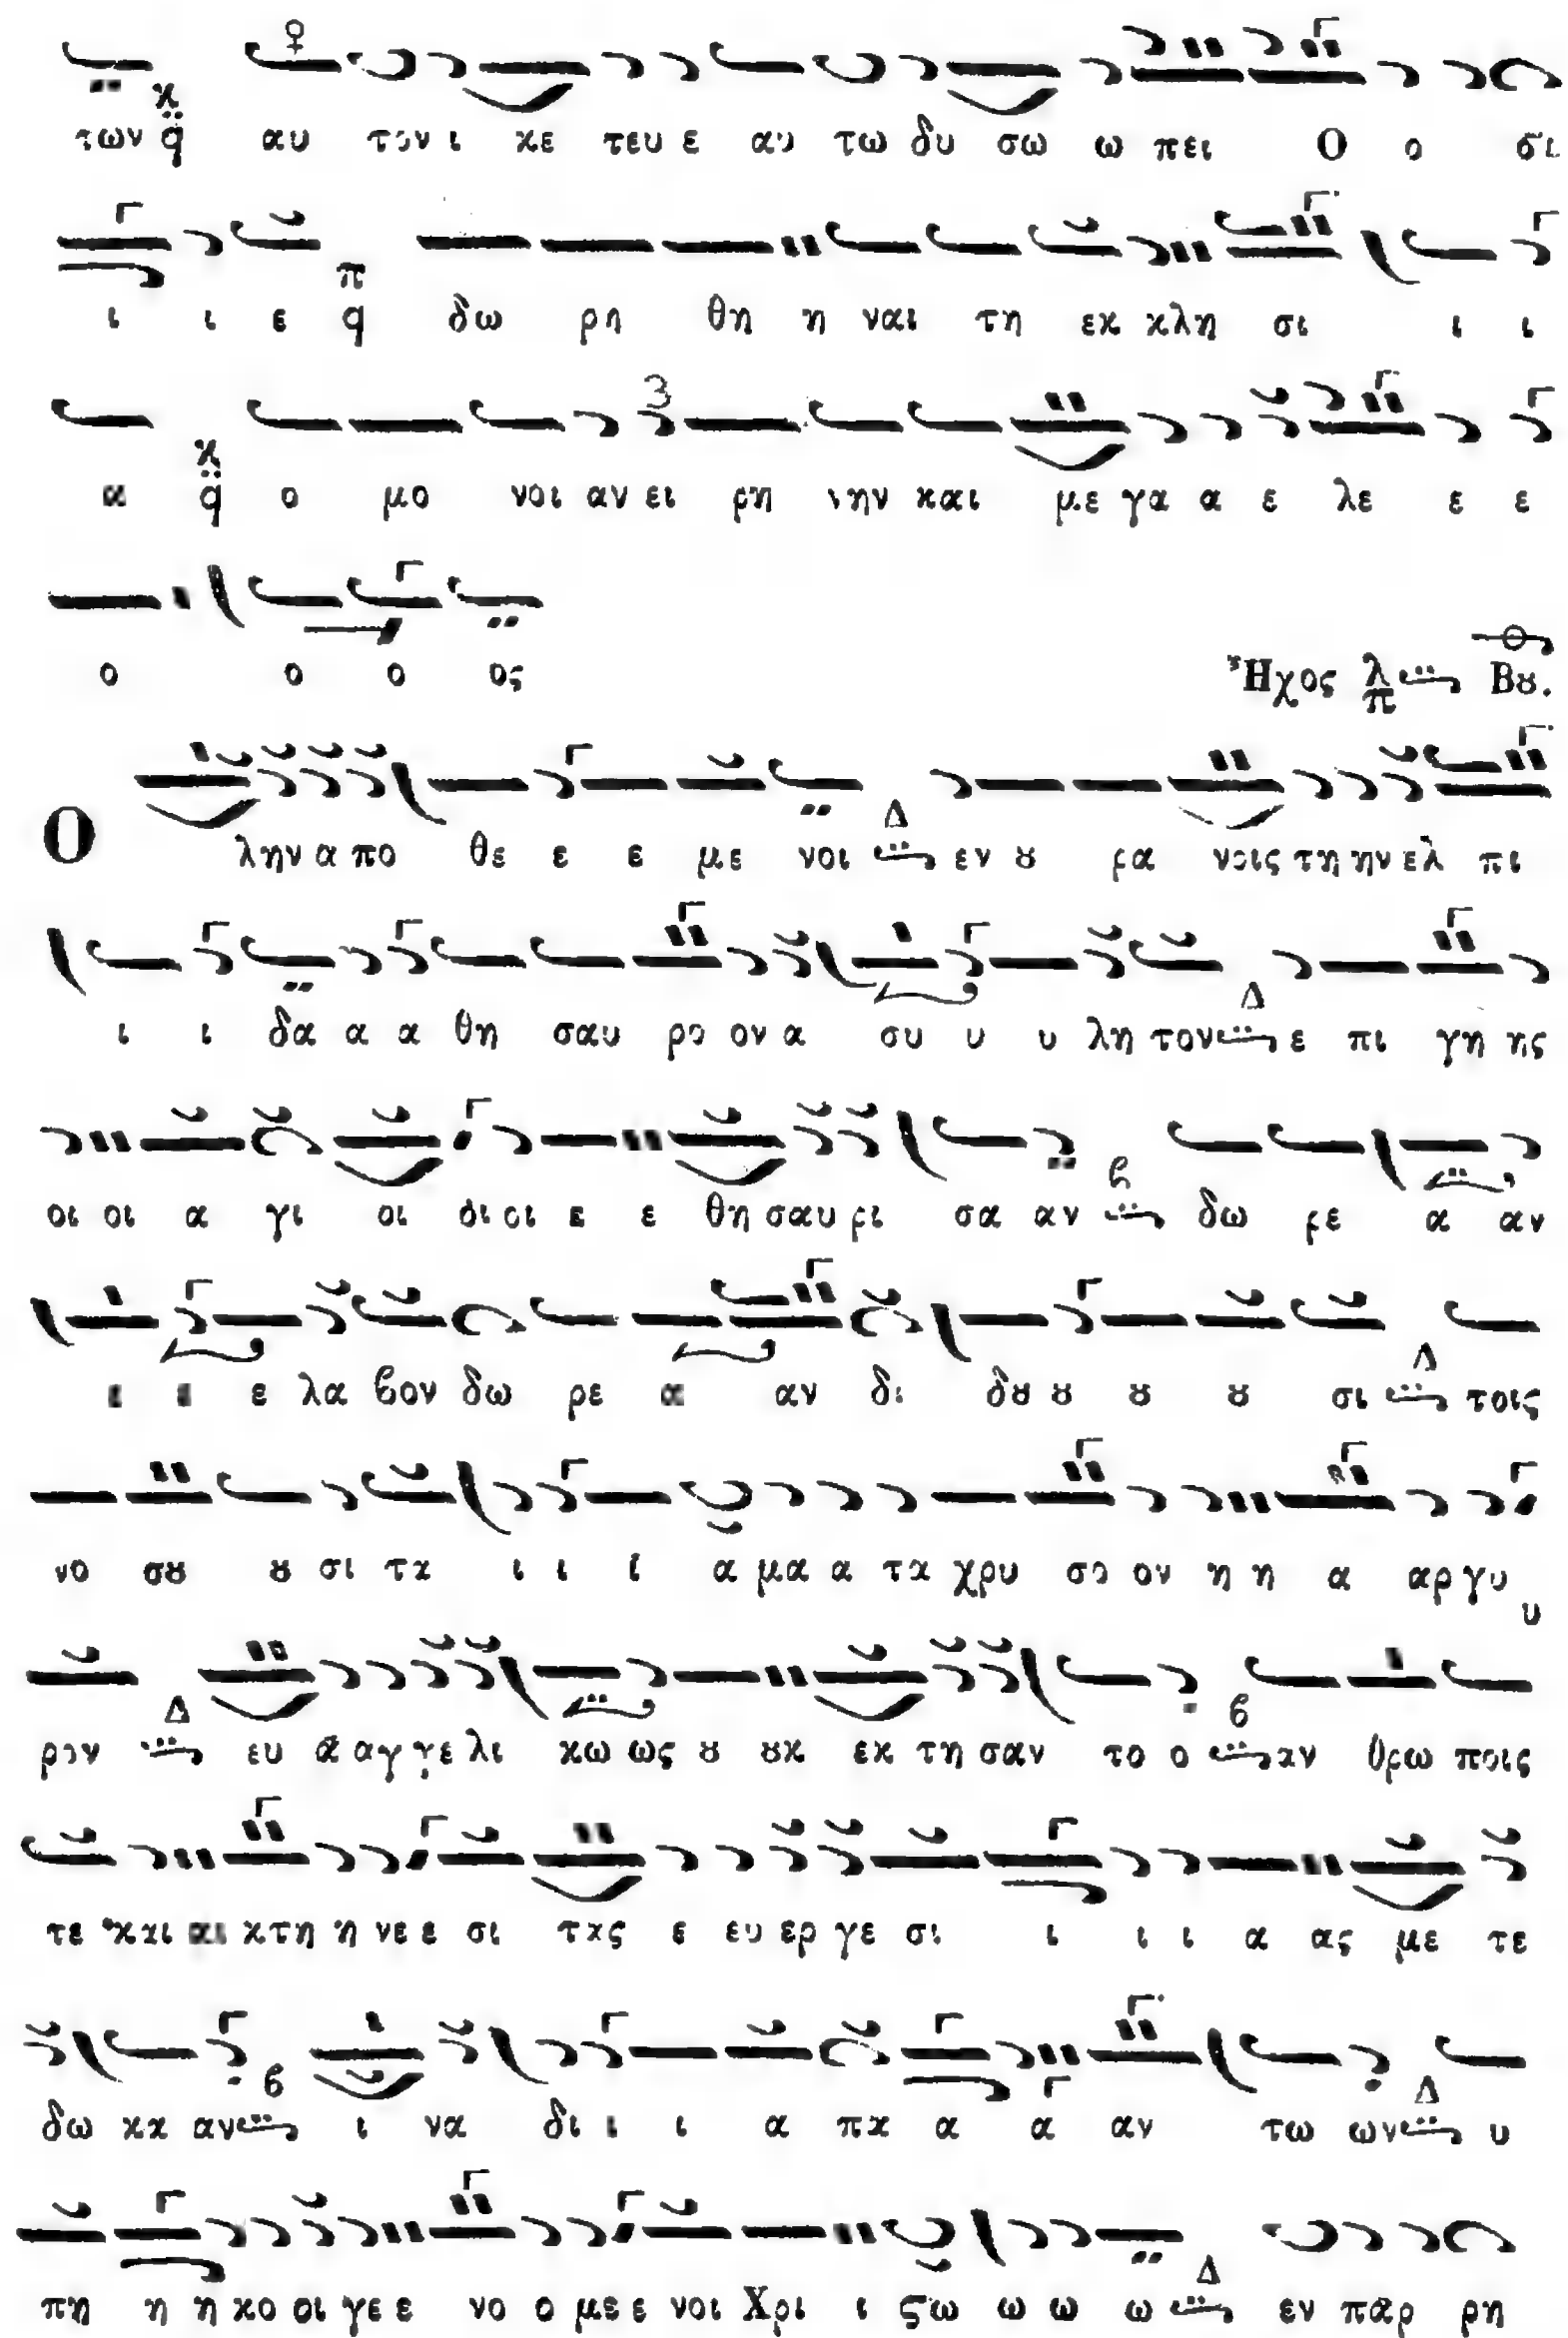 των q̈ αυ τον ι κε τευ ε αυ τω δυ σω ω πει Ο ο σι
ι ι ε q δω ρη θη η ναι τη εκ κλη σι ι ι
α q̈ ο μο νοι αν ει ρη νην και με γα α ε λε ε ε
ο ο ο ος
Ἦχος λ π Βȣ.
Ο λην α πο θε ε ε με νοι Δ εν ȣ ρα νοις τη ην ελ πι
ι ι δα α α θη σαυ ρο ον α συ υ υ λη τον Δ ε πι γη ης
οι οι α γι οι οι οι ε ε θη σαυ ρι σα αν ϐ δω ρε α αν
ε ε ε λα ϐον δω ρε α αν δι δȣ ȣ ȣ ȣ σι Δ τοις
νο σȣ ȣ σι τα ι ι ι α μα α τα χρυ σο ον η η α αρ γυ υ
ρον Δ ευ α αγ γε λι κω ως ȣ ȣκ εκ τη σαν το ο ϐ αν θρω ποις
τε και αι κτη η νε ε σι τας ε ευ ερ γε σι ι ι ι α ας με τε
δω κα αν ϐ ι να δι ι ι α πα α α αν τω ων Δ υ
πη η η κο οι γε ε νο ο με ε νοι Χρι ι ϛω ω ω ω Δ εν παρ ρη